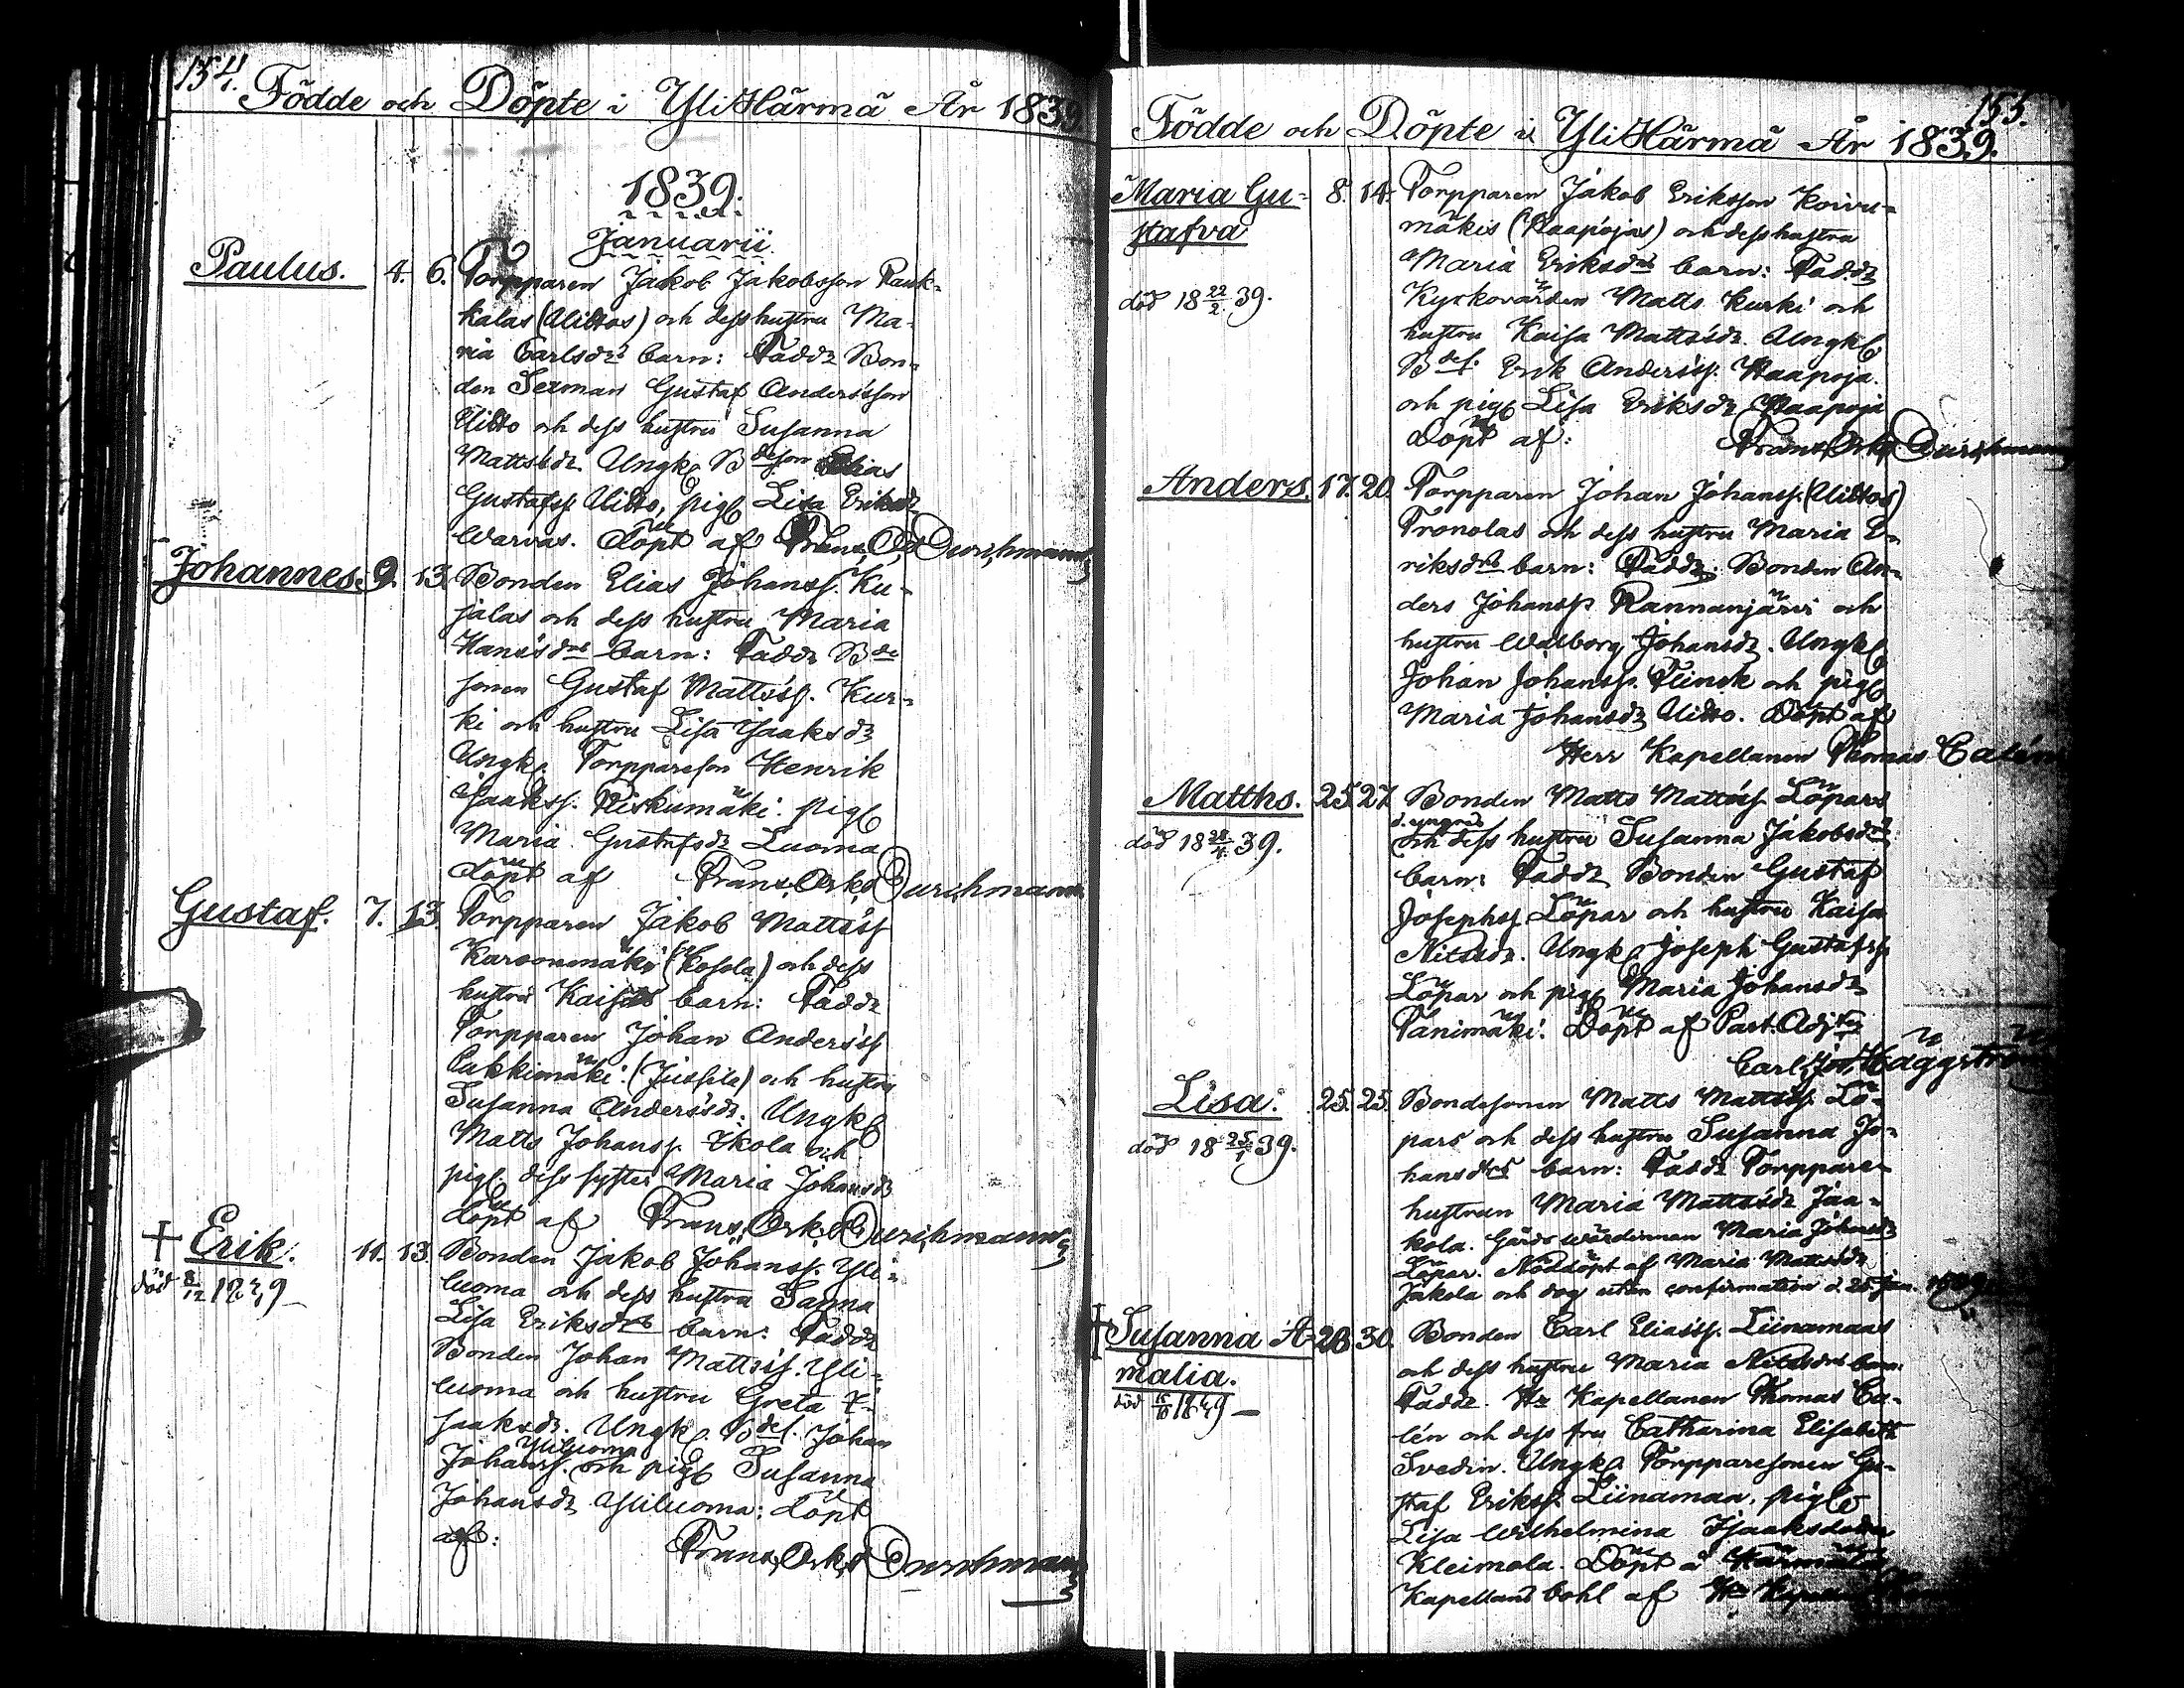 154.
Födde och Döpte i YliHärmä År 1839
1839.
Januarii
Paulus. 4. 6. Torpparen Jakob Jakobsson Pauk-
kalas (Uittos) och dess hustru Ma-
ria Carlsdrs barn: Fadd: Bon-
den Sexman Gustaf Andersson
Uitto och dess hustru Susanna
Mattsdr. Ungk. Bdeson Elias
Gustafss. Uitto, pig. Lisa Eriksdr
Warvas. Döpt af Frans Osk. Durchmann
Johannes. 9. 13. Bonden Elias Johanss. Ku-
jalas och dess hustru Maria
Hansdrs barn: Fadd: Bde
sonen Gustaf Mattss. Kur-
ki och hustru Lisa Isaaksdr
Ungk. Torppareson Henrik
Isaakss. Riskumäki. pig.
Maria Gustafsdr Luoma
döpt af Frans Osk. Durchmann
Gustaf. 7. 13. Torpparen Jakob Mattss
Karvonmäki (Kosola) och dess
hustru Kaisas barn: Fadd:
Torpparen Johan Anderss
Pukkimäki (Jussila) och hustru
Susanna Andersdr. Ungk.
Matts Johanss. Ikola och
pig. dess syster Maria Johansdr
döpt af Frans Osk. Durchmann
+ Erik. 11. 13. Bonden Jakob Johanss. Yli-
död 8/12 1849 luoma och dess hustru Sanna
Lisa Eriksdrs barn: Fadd:
Bonden Johan Mattss. Yli-
luoma och hustru Greta I-
saaksdr. Ungk. Bdes. Johan
Yliluoma
Johanss. och pig. Susanna
Johansdr Yliluoma: döpt
af: Frans Osk. Durchmann
155.
Födde och Döpte i YliHärmä År 1839.
Maria Gu- 8. 14. Torpparen Jakob Eriksson Koivu-
stafva mäkis (Haapojas) och dess hustru
Maria Eriksdrs barn: Fadd:
död 18 22/2 39. Kyrkovärden Matts Kurki och
hustru Kaisa Mattsdr. Ungk.
Bdes. Erik Anderss. Haapoja.
och pig. Lisa Eriksdr Haapoja
döpt af: Frans Osk. Durchmann
Anders. 17. 20. Torpparen Johan Johanss. (Uittos)
Pronolas och dess hustru Maria E-
riksdrs barn: Fadd: Bonden An-
ders Johanss Rannanjärvi och
hustru Walborg Johansdr. Ungk.
Johan Johanss. Flinck och pig.
Maria Johansdr Uitto. Döpt af
Herr Kapellanen Thomas Calén
Matths. 25. 27. Bonden Matts Mattss Löpars
d. yngres
död 18 28/4 39. och dess hustru Susanna Jakobsdrs
barn: Fadd: Bonden Gustaf
Josephss. Löpar och hustru Kaisa
Nilsdr. Ungk. Joseph Gustafss
Löpar och pig. Maria Johansdr
Panimäki. Döpt af Past. Adj.
Carl Joh. Häggström
Lisa. 25. 25. Bondesonen Matts Mattss. Lö-
död 18 25/1 39. pars och dess hustru Susanna Jo-
hansdrs barn: Fadd: Torppare-
hustrun Maria Mattsdr Jaa-
kola. Gårdswärdinnan Maria Johansdr
Löpar. Nöddöpt af Maria Mattsdr
Jakola och dog utan confirmation d. 25 Jan. 1839
+ Susanna A- 28. 30. Bonden Carl Eliass. Liinamaas
malia. och dess hustru Maria Nilsdrs barn:
död 15/10 1849 Fadd: Hr Kapellanen Thomas Ca-
lén och dess fru Catharina Elisabeth
Svedin. Ungk. Torpparesonen Gu-
staf Erikss. Liinamaa. pig.
Lisa Wilhelmina Isaaksdotter
Kleimola. Döpt å Härmälä
Kapellans bohl af Hr